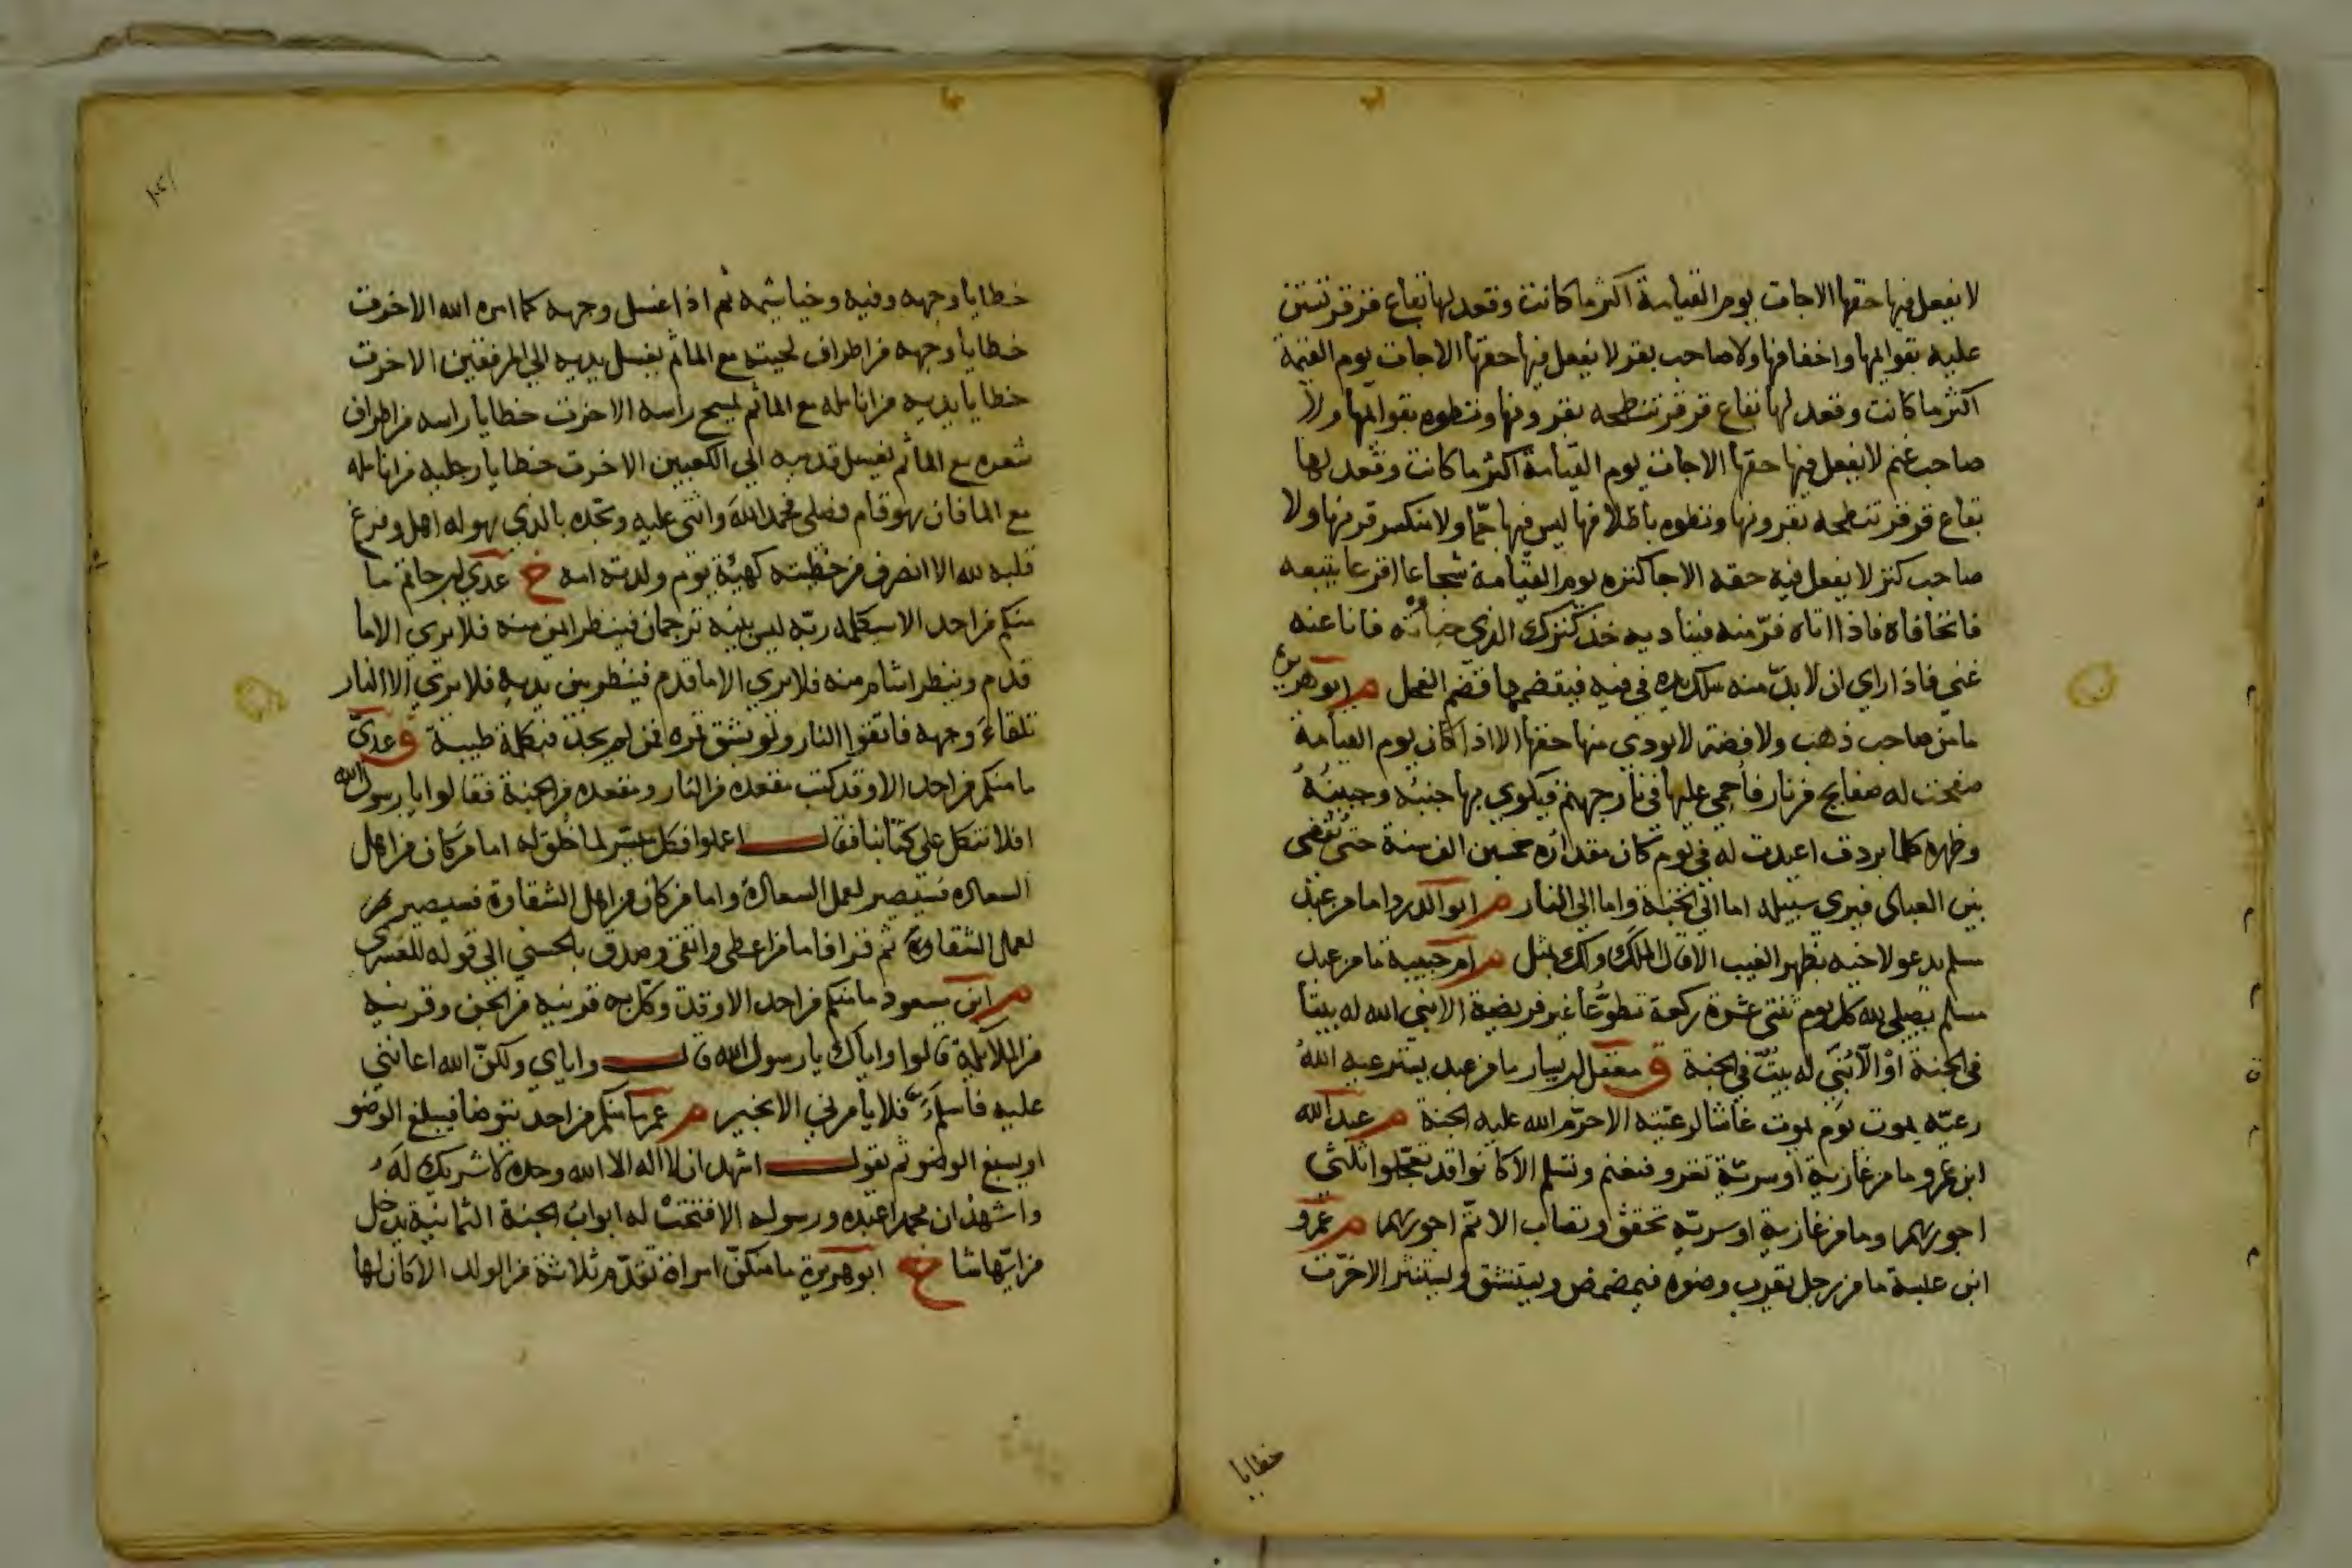 لا يفعل فيها حقها الا جات يوم القيامة اكثر ما كانت وقعد لها بقاع قرقر تستن
عليه بقوايمها واخفافها ولا صاحب بقر لا يفعل فيها حقها الا جات يوم القيمة
اكثر ما كانت وقعد لها بقاع قرقر تنطحه بقرونها وتطوه بقوايمها ولا
صاحب غنم لا يفعل فيها حقها الا جات يوم القيامة اكثر ما كانت وقعد لها
بقاع قرقر تنطحه بقرونها وتطوه باظلافها ليس فيها جمّا ولا منكسر قرنها ولا
صاحب كنز لا يفعل فيه حقه الا جا كنزه يوم القيامة شجاعا اقرعا يتبعه
فاتحا فاه فاذا اتاه فرّ منه فيناديه خذ كنزك الذي خبأته فانا عنه
غني فاذا راي ان لا بدّ منه سلك يده في فيه فيقضمها قضم الفحل م ابو هريرة
ما من صاحب ذهب ولا فضة لا يودي منها حقها الا اذا كان يوم القيامة
صفحت له صفايح من نار فأحمي عليها في نار جهنم فيكوي بها جنبه وجبينه
وظهره كلما بردت اعيدت له في يوم كان مقداره خمسين الف سنة حتى يقضى
بين العباد فيري سبيله اما الي الجنة واما الي النار م ابو الدردا ما من عبد
مسلم يدعو لاخيه بظهر الغيب الا قال الملك ولك بمثل م ام حبيبة ما من عبد
مسلم يصلي لله كل يوم ثنتي عشرة ركعة تطوّعا غير فريضة الا بني الله له بيتا
في الجنة او الا بُنِيَ له بيتٌ في الجنة ق معقل بن يسار ما من عبد يسترعيه الله
رعيّة يموت يوم يموت غاشا لرعيته الا حرّم الله عليه الجنة م عبد الله
ابن عمرو ما من غازية او سريّة تغزو فتغنم وتسلم الا كانوا قد تعجّلوا ثلثي
اجورهم وما من غازية او سريّة تخفق وتصاب الا تمّ اجورهم م عمرو
ابن عبسة ما من رجل يقرب وضوه فيمضمض ويستنشق ويستنثر الا خرّت
خطايا
خطايا وجهه وفيه وخياشيمه ثم اذا غسل وجهه كما امره الله الا خرت
خطايا وجهه من اطراف لحيته مع الما ثم يغسل يديه الي المرفقين الا خرت
خطايا يديه من انامله مع الما ثم يمسح راسه الا خرت خطايا راسه من اطراف
شعره مع الما ثم يغسل قدميه الي الكعبين الا خرت خطايا رجليه من انامله
مع الما فان هو قام فصلي فحمد الله واثنى عليه ومجّده بالذي هو له اهل وفرغ
قلبه لله الا انصرف من خطيته كهيئة يوم ولدته امه خ عدي بن حاتم ما
منكم من احد الا سيكلمه ربّه ليس بينه ترجمان فينظر ايمن منه فلا يري الا ما
قدم وينظر اشام منه فلا يري الا ما قدم فينظر بين يديه فلا يري الا النار
تلقاء وجهه فاتقوا النار ولو بشق تمرة فمن لم يجد فبكلمة طيبة ق عديّ
ما منكم من احد الا وقد كتب مقعده من النار ومقعده من الجنة فقالوا يا رسول الله
افلا نتكل علي كتابنا فقال اعملوا فكل ميسّر لما خُلق له اما من كان من اهل
السعادة فسيصير لعمل السعادة واما من كان من اهل الشقاوة فسيصير
لعمل الشقاوة ثم قرا فاما من اعطي واتقي وصدق بالحسني الي قوله للعسرى
م ابن مسعود ما منكم من احد الا وقد وكّل به قرينه من الجن وقرينه
من الملايكة قالوا واياك يا رسول الله قال واياي ولكنّ الله اعانني
عليه فأسلم فلا يأمرني الا بخير م عمر ما منكم من احد يتوضا فيبلغ الوضو
او يسبغ الوضو ثم يقول اشهد ان لا اله الا الله وحده لا شريك له
واشهد ان محمدا عبده ورسوله الا فتحت له ابواب الجنة الثمانية يدخل
من ايّها شا خ ابو هريرة ما منكنّ امراة تقدّم ثلاثة من الولد الا كان لها